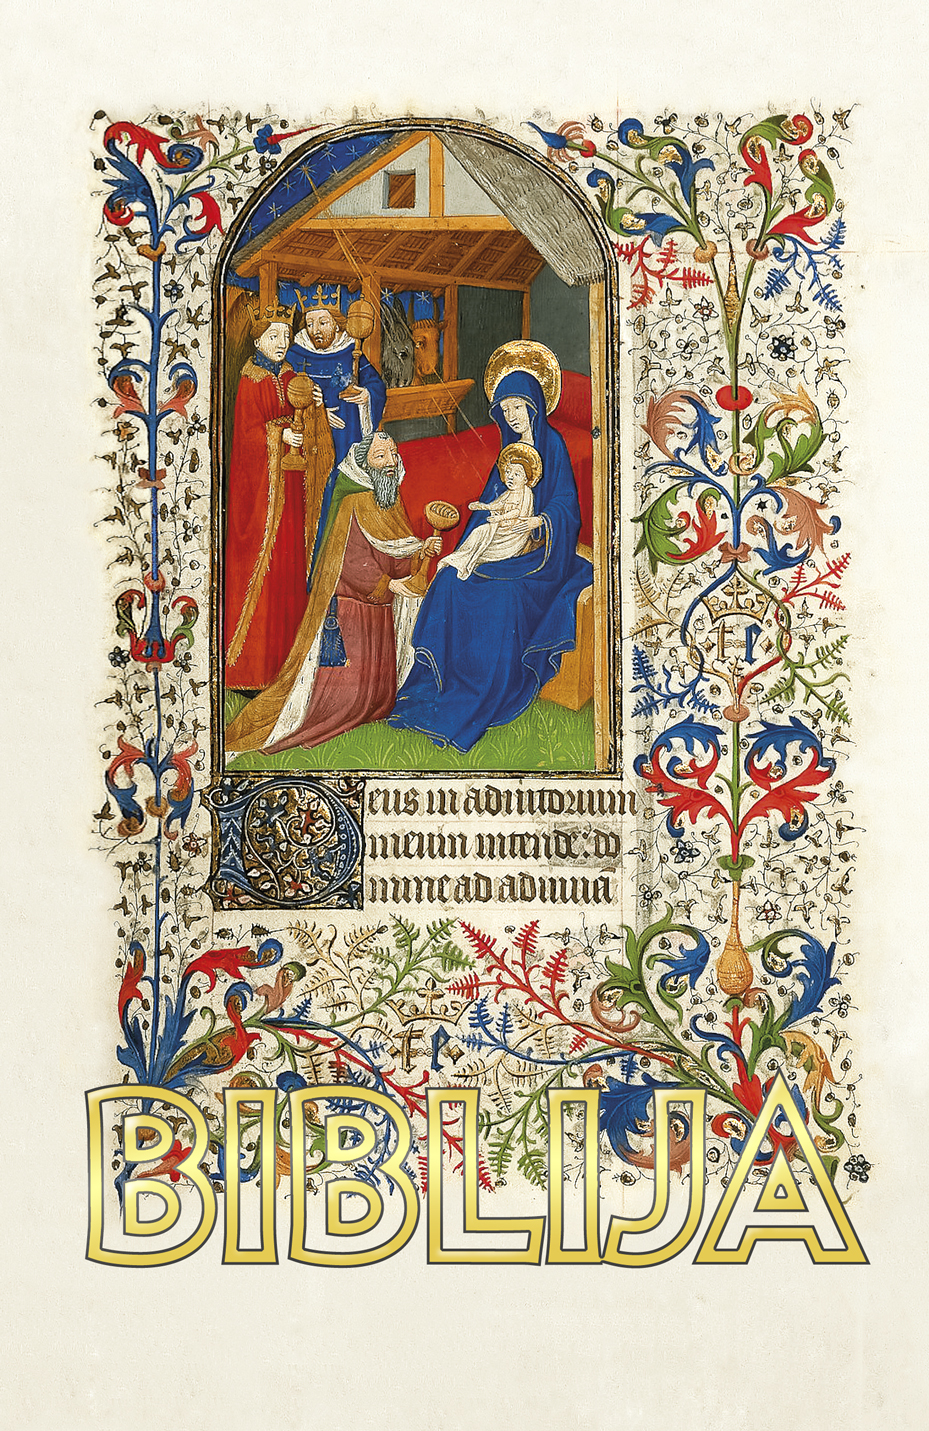 t e
Deus in adiutorium
meum intende: do
mine ad adiuuā
t e
BIBLIJA